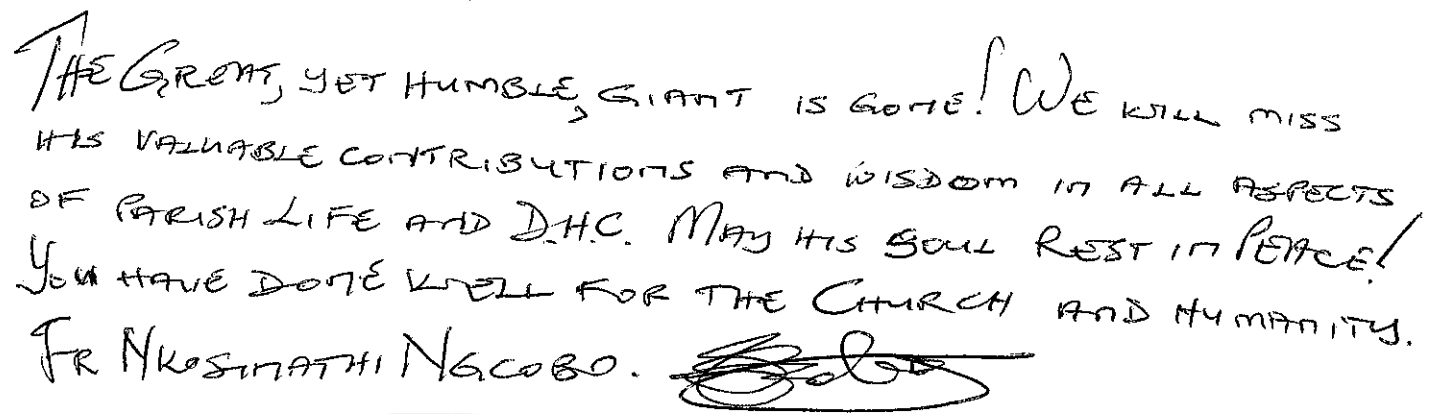 THE GREAT, YET HUMBLE, GIANT IS GONE! WE WILL MISS
HIS VALUABLE CONTRIBUTIONS AND WISDOM IN ALL ASPECTS
OF PARISH LIFE AND D.H.C. MAY HIS SOUL REST IN PEACE!
YOU HAVE DONE WELL FOR THE CHURCH AND HUMANITY.
FR NKOSINATHI NGCOBO.